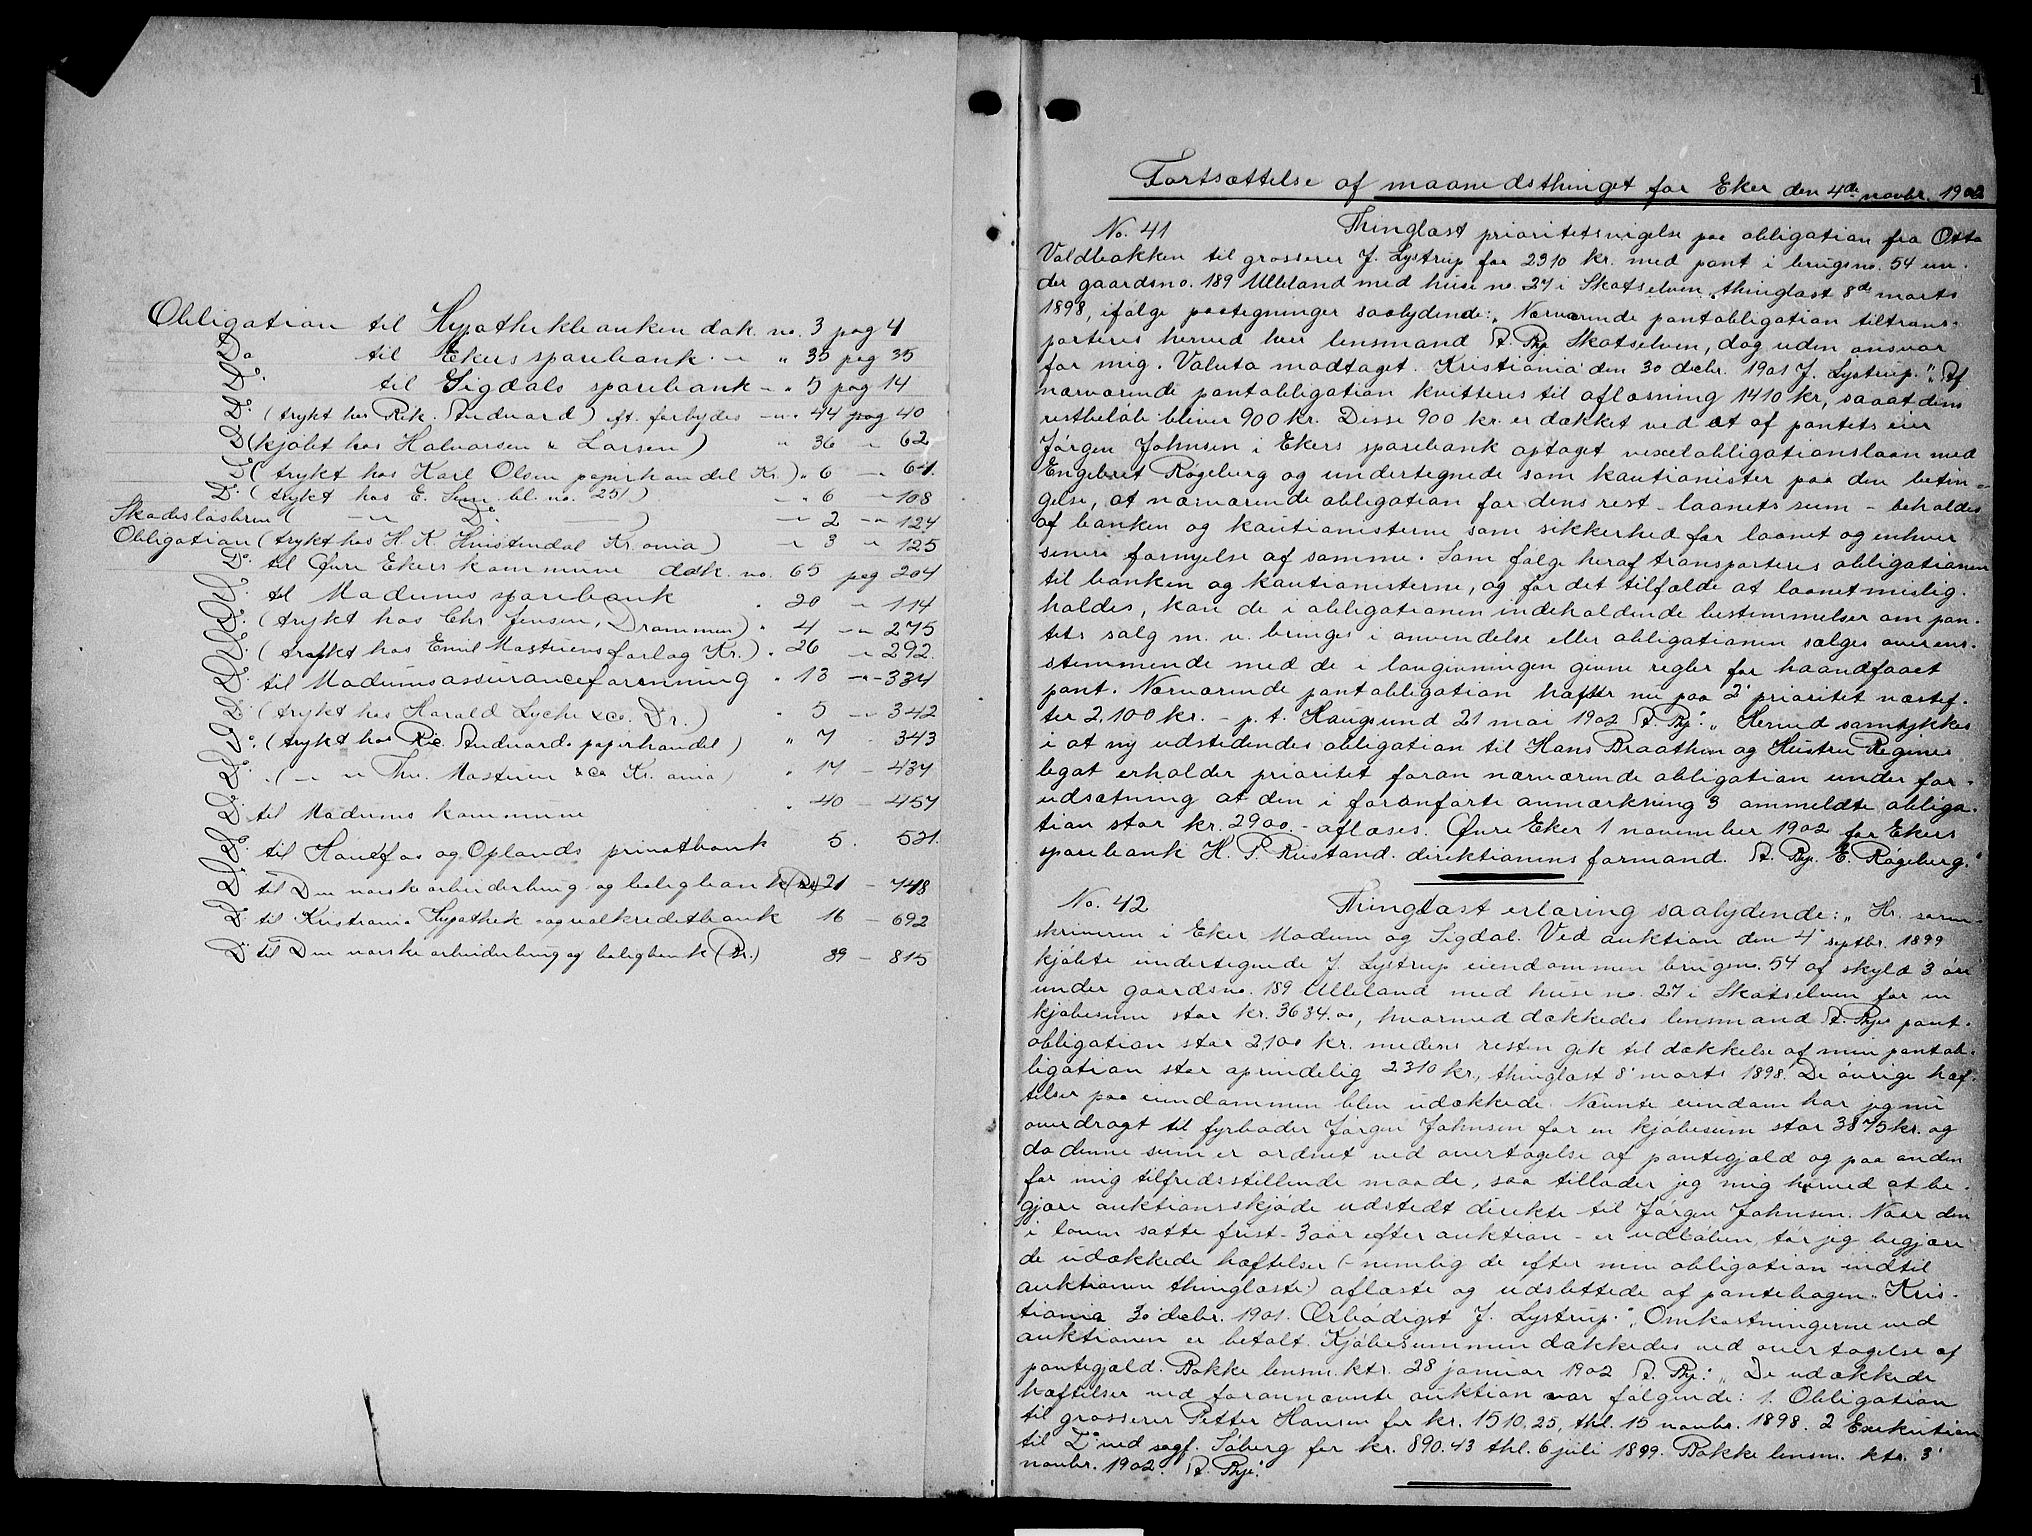 Obligation til Hypothekbanken dok. no. 3 pag 4
Do til Ekers sparebank - " - " 35 pag 35
Do til Sigdals sparebank - " 5 pag 14
Do (trykt hos Rik. Andvard) eft. forbydes - " - 44 pag 40
Do (kjøbt hos Halvorsen & Larsen) " 36 - " 62
Do (trykt hos Karl Olsen papirhandel Kr.) " 6 - " 64
Do (trykt hos E. Sem bl. no. 251) - " 6 - 108
Skadesløsbrev ( - " - Do - ) - " 2 - " - 124
Obligation (trykt hos H. K. Kristendal Kr.ania) - " 3 " 125
Do til Øvre Ekers kommune dok. no. 65 pag 204
Do til Modums sparebank " 20 - " 114
Do (trykt hos Chr. Jensen, Drammen) " 4 - " - 275
Do (trykt hos Emil Mosturns forlag Kr.) " 26 - " 292.
Do til Modums assuranceforenning " 13 - " - 334
Do (trykt hos Harald Lyche & co. Dr.) " 5 - " 342
Do (trykt hos Ric. Andvards papirhandel) " 7 - 343
Do ( - " - Thv. Mosturn & Co Kr.ania) " 17 - 437
Do til Modums kommune " 40 - 457
Do til Hønefos og Oplands privatbank 5. 521.
Do til Den norske arbeiderbrug og boligbank 21 - 748
Do til Kristiania Hypothek- og realkreditbank 16 - 692
Do til Den norske arbeiderbrug og boligbank (Br.) 39 - 815
1
Fortsættelse af maanedsthinget for Eker den 4de novbr. 1902
No. 41 Thinglæst prioritetsvigelse paa obligation fra Otto
Voldbakken til grosserer J. Lystrup for 2310 kr. med pant i brugsno. 54 un-
der gaardsno. 189 Ulleland med huse no. 27 i Skotselven, thinglæst 8de marts
1898, ifølge paategninger saalydende: „Nærværende pantobligation tiltrans-
porteres herved herr lensmand A. Bye Skotselven, dog uden ansvar
for mig. Valuta modtaget. Kristiania den 30 decbr. 1901 J. Lystrup.” „Af
nærværende pantobligation kvitteres til afløsning 1410 kr, saaat dens
restbeløb bliver 900 kr. Disse 900 kr. er dækket ved et af pantets eier
Jørgen Johnsen i Ekers sparebank optaget vexelobligationslaan med
Engebret Røgeberg og undertegnede som kautionister paa den betin-
gelse, at nærværende obligation for dens rest - laanets sum - beholdes
af banken og kautionisterne som sikkerhed for laanet og enhver
senere fornyelse af samme. Som følge heraf transporteres obligationen
til banken og kautionisterne, og for det tilfælde at laanet mislig-
holdes, kan de i obligationen indeholdende bestemmelser om pan-
tets salg m. v. bringes i anvendelse eller obligationen sælges overens-
stemmende med de i lovgivningen givne regler for haandfaaet
pant. Nærværende pantobligation hæfter nu paa 2' prioritet næstef-
ter 2,100 kr. - p. t. Haugsund 21 mai 1902 A. Bye.” „Herved samtykkes
i at ny udstedendes obligation til Hans Braathen og Hustru Regines
legat erholder prioritet foran nærværende obligation under for-
udsætning at den i foranførte anmærkning 3 ommeldte obliga-
tion stor kr. 2900 - aflæses. Øvre Eker 1 november 1902 for Ekers
sparebank H. P. Rustand. direktionens formand. A. Bye. E. Røgeberg.”
No. 42 Thinglæst erlæring saalydende: „Hr. soren-
skriveren i Eker Modum og Sigdal. Ved auktion den 4' septbr. 1899
kjøbte undertegnede J. Lystrup eiendommen brugsno. 54 af skyld 3 øre
under gaardsno. 189 Ulleland med huse no. 27 i Skotselven for en
kjøbesum stor kr. 3634.00, hvormed dækkedes lensmand A. Byes pant-
obligation stor 2,100 kr. medens resten gik til dækkelse af min pantob-
ligation stor oprindelig 2310 kr., thinglæst 8' marts 1898. De øvrige hæf-
telser paa eiendommen blev udækkede. Nævnte eiendom har jeg nu
overdragt til fyrbøder Jørgen Johnsen for en kjøbesum stor 3875 kr. og
da denne sum er ordnet ved overtagelse af pantegjæld og paa anden
for mig tilfredsstillende maade, saa tillader jeg mig herved at be-
gjære auktionsskjøde udstedt direkte til Jørgen Johnsen. Naar den
i loven satte frist - 3 aar efter auktion - er udløben, tør jeg begjære
de udækkede hæftelser (- nemlig de efter min obligation indtil
auktionen thinglæste) aflæste og udslettede af pantebogen. Kris-
tiania 30 decbr. 1901. Ærbødigst J. Lystrup.” „Omkostningerne ved
auktionen er betalt. Kjøbesummen dækkedes ved overtagelse af
pantegjæld. Bakke lensm.ktr. 28 januar 1902 A. Bye.” „De udækkede
hæftelser ved forannævnte auktion var følgende: 1. Obligation
til grosserer Petter Hansen for kr. 1510,25, thl. 15 novbr. 1898. 2 Exekution
til Do ved sagf. Søberg for kr. 890.43 thl. 6 juli 1899. Bakke lensm. ktr. 3'
novbr. 1902. A. Bye.”